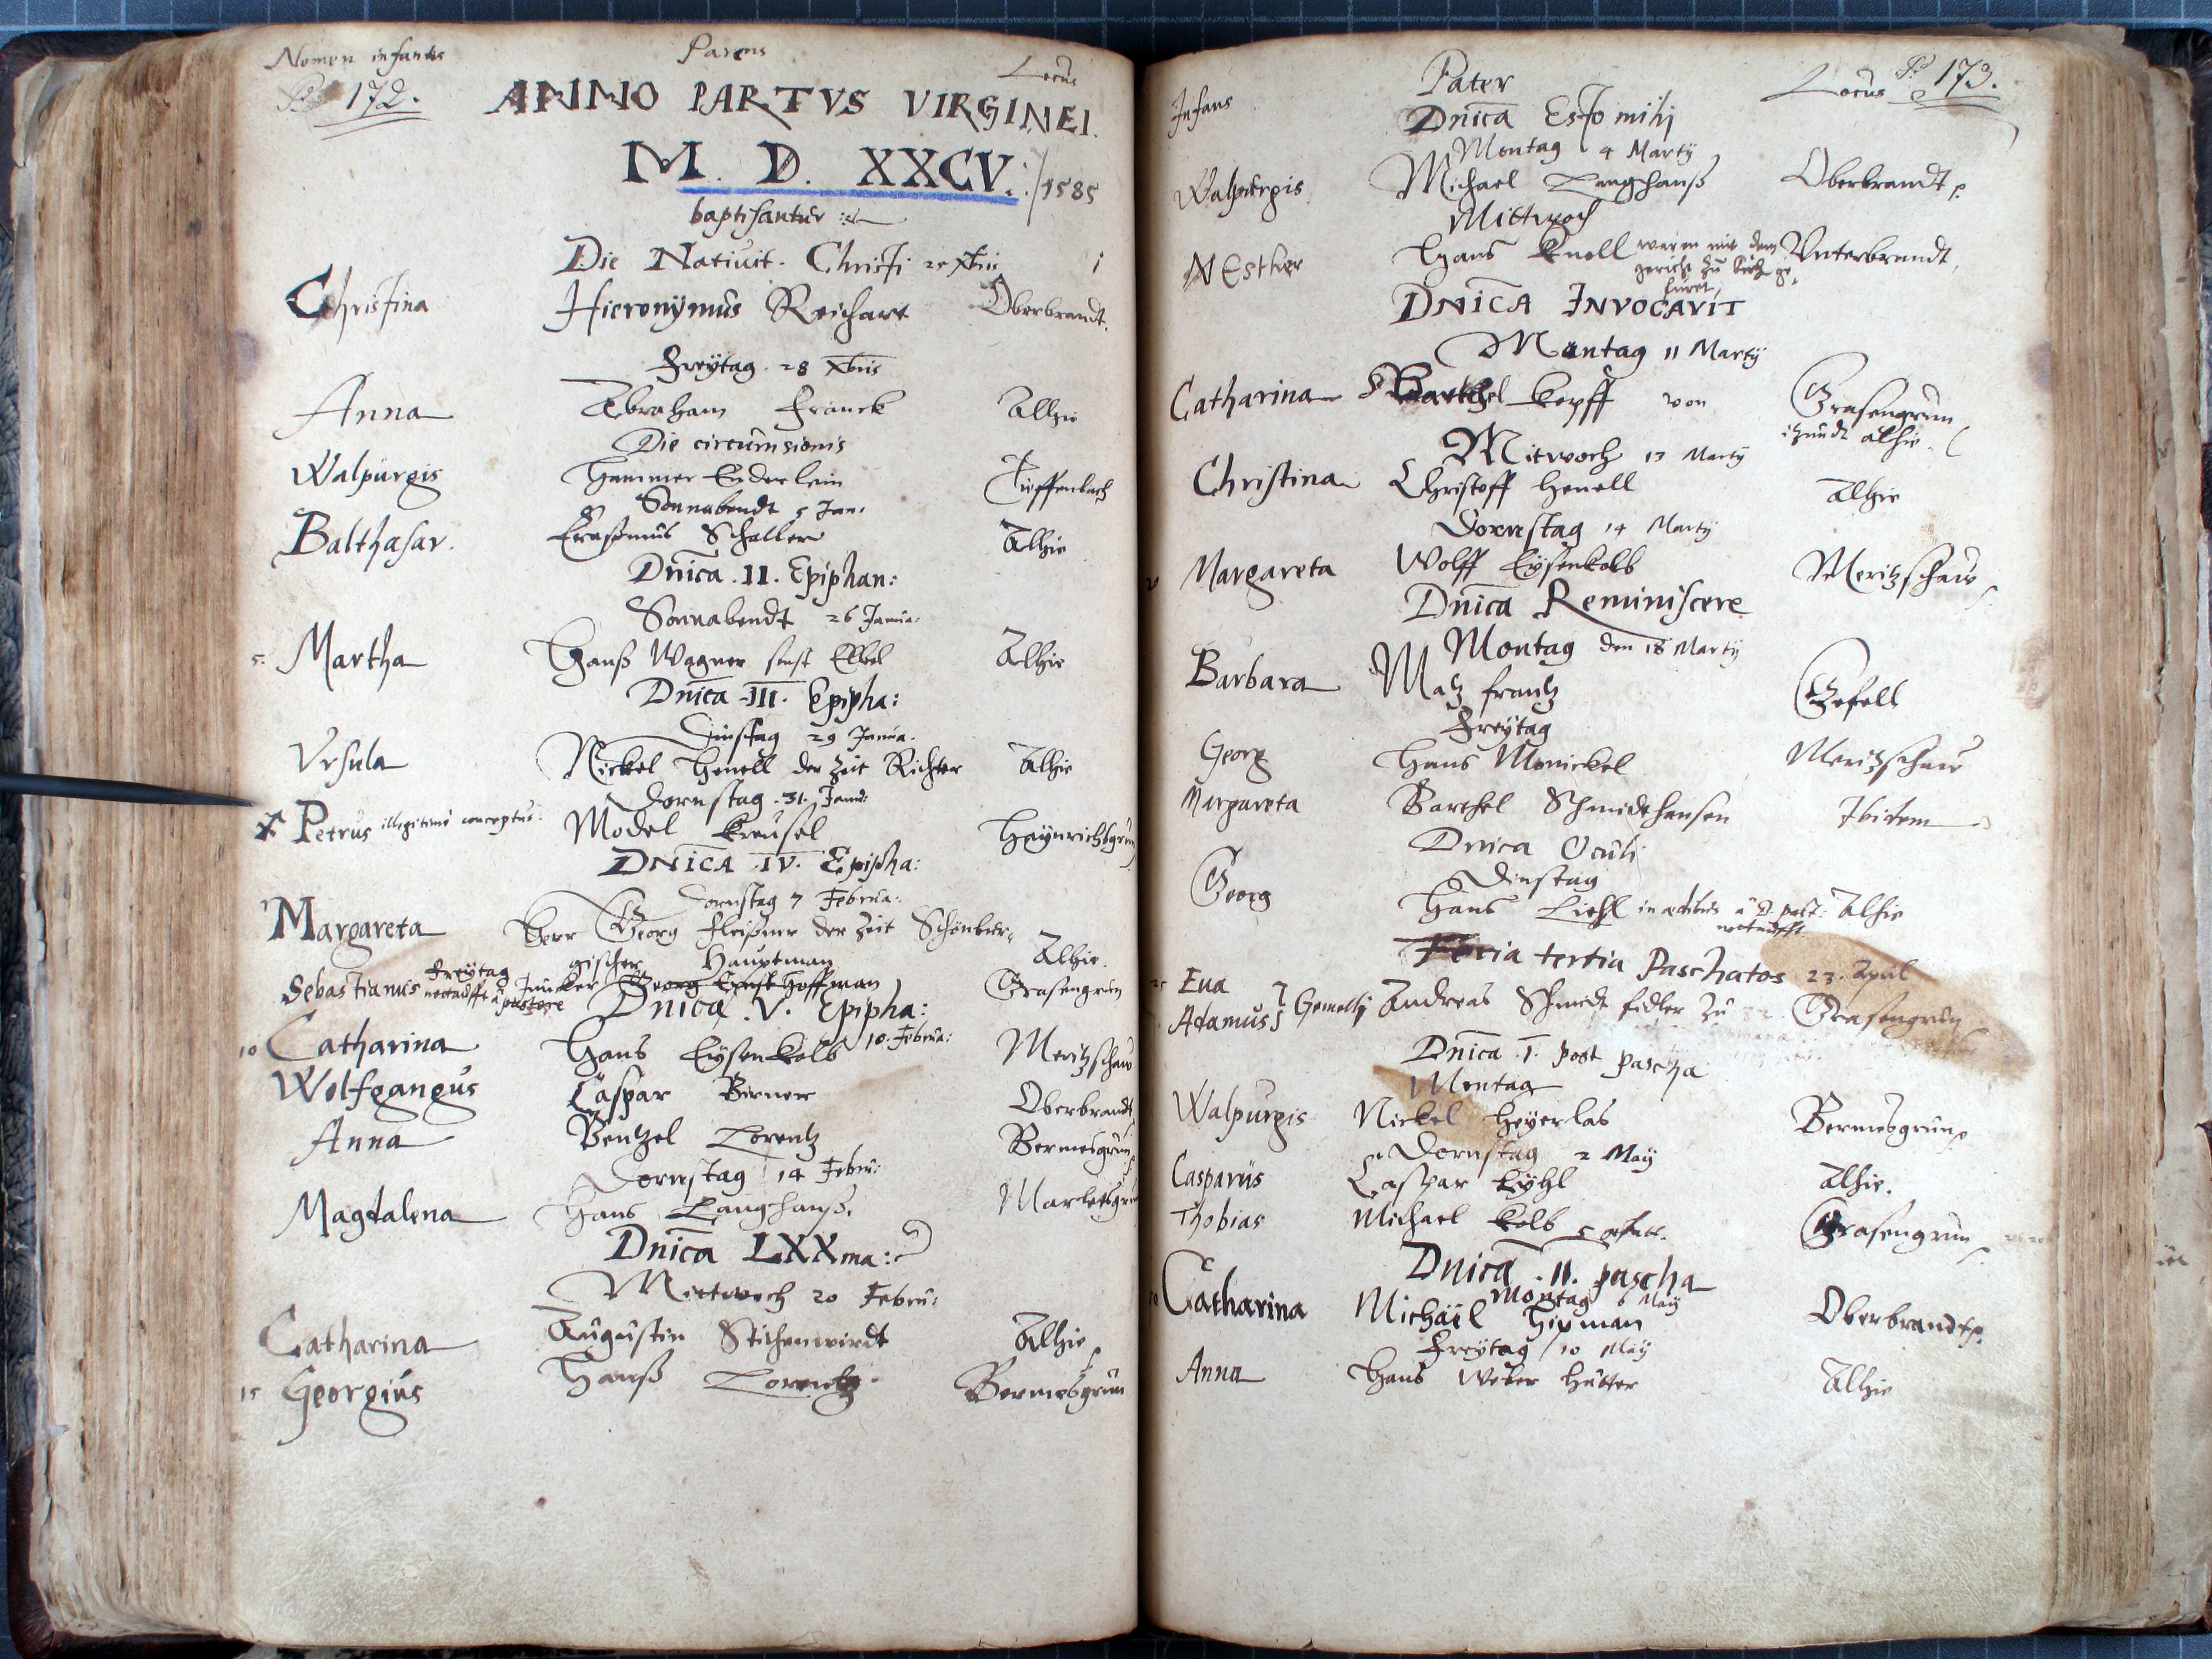 Nomen infantis Parens Locus
P. 172. ANNO PARTVS VIRGINEI.
M. D. XXCV. /1585
baptisantur
Die Nativit. Christi 25 Xbris 1
Christina Hieronymus Reichart Oberbrandt.
Freytag 28 Xbris
Anna Abraham Franck Alhie
Die circumsionis
Walpurgis Hammer Enderlein Tieffenbach
Sonnabendt 5 Jan.
Balthasar. Erasmus Schaller Alhie
Dnica .II. Epiphan:
Sonnabendt 26 Janua:
5. Martha Hanß Wagner sonst Elbel Alhie
Dnica .III. Epipha:
Dinstag 29 Janua.
Vrsula Nickel Henell der Zeit Richter Alhie
Dornstag .31. Janu:
Petrus illegitimè conceptus: Model Kreusel Heynrichsgrun
DNICA .IV. Epipha:
Dornstag 7 Februa:
Margareta Herr Georg Fleißner der Zeit Schönbur-
gischer Hauptman Alhie.
Sebastianus Freytag nottaufft â pastore Juncker Georg Ernst Hoffman Grasengrun
Dnica .V. Epipha:
10. Februa:
10 Catharina Hans Eysenkolb Meritzschaw
Wolfgangus Caspar Birner Oberbrandt
Anna Wentzel Lorentz Bermesgrun
Dornstag 14 Febru:
Magdalena Hans Langhanß. Marletsgrun
Dnica LXXma:
Mittwoch 20 Febru:
Catharina Augustin Stichenwirdt Alhie
15 Georgius Hanß Lorentz Bermesgrun
Infans Pater Locus P. 173.
Dnica Esto mihi
Montag 4 Martij
Walpurgis. Michael Langhanß Oberbrandt
Mittwoch
Esther Hans Knoll waren mit dem Vnterbrandt
gericht zu Kirch ge-
furet
DNICA INVOCAVIT
Montag 11 Martij
Catharina Barthel Kopff von Grasengrun
itzundt alhie.
Mitwoch 13 Martij
Christina Christoff Henell Alhie
Dornstag 14 Martij
20 Margareta Wolff Eysenkolb Meritzschaw
Dnica Reminiscere
Montag den 18 Martij
Barbara Matz Frantz Gefell
Freytag
Georg Hans Monickel Meritzschaw
Margareta Barthel Schmidthansen Ibidem
Dnica Oculi
Dinstag
Georg Hans Liehl in aedibus â D. past: Alhie
nottaufft.
Feria tertia Paschatos 23. April
25 Eua
Adamus } Gemelli Andreas Schmidt fidler zu Grasengrun
Dnica .I. post pascha
Montag
Walpurgis Nickel Heyerlas Bermesgrun
Dornstag 2 Maij
Casparus Caspar Kyhl Alhie.
Thobias Michael Kolb Grasengrun
Dnica .II. pascha
Montag 6 Maij
30 Catharina Michael Hixman Oberbrandt
Freytag 10 Maij
Anna Hans Weber Hutter Alhie